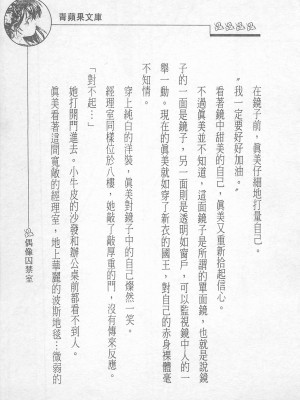 青蘋果文庫
在鏡子前，眞美仔細地打量自己。
“我一定要好好加油。”
看著鏡中甜美的自己，眞美又重新拾起信心。
不過眞美並不知道，這面鏡子是所謂的單面鏡，也就是說鏡
子的一面是鏡子，另一面則是透明如窗戶，可以監視鏡中人的一
舉一動。現在的眞美就如穿了新衣的國王，對自己的赤身裸體毫
不知情。
穿上純白的洋裝，眞美對鏡子中的自己燦然一笑。
經理室同樣位於八樓，她敲了敲厚重的門，沒有傳來反應。
「對不起…」
她打開門進去。小牛皮的沙發和辦公桌前都看不到人。
眞美看著這間寬敞的經理室，地上華麗的波斯地毯…微弱的
偶像囚禁室